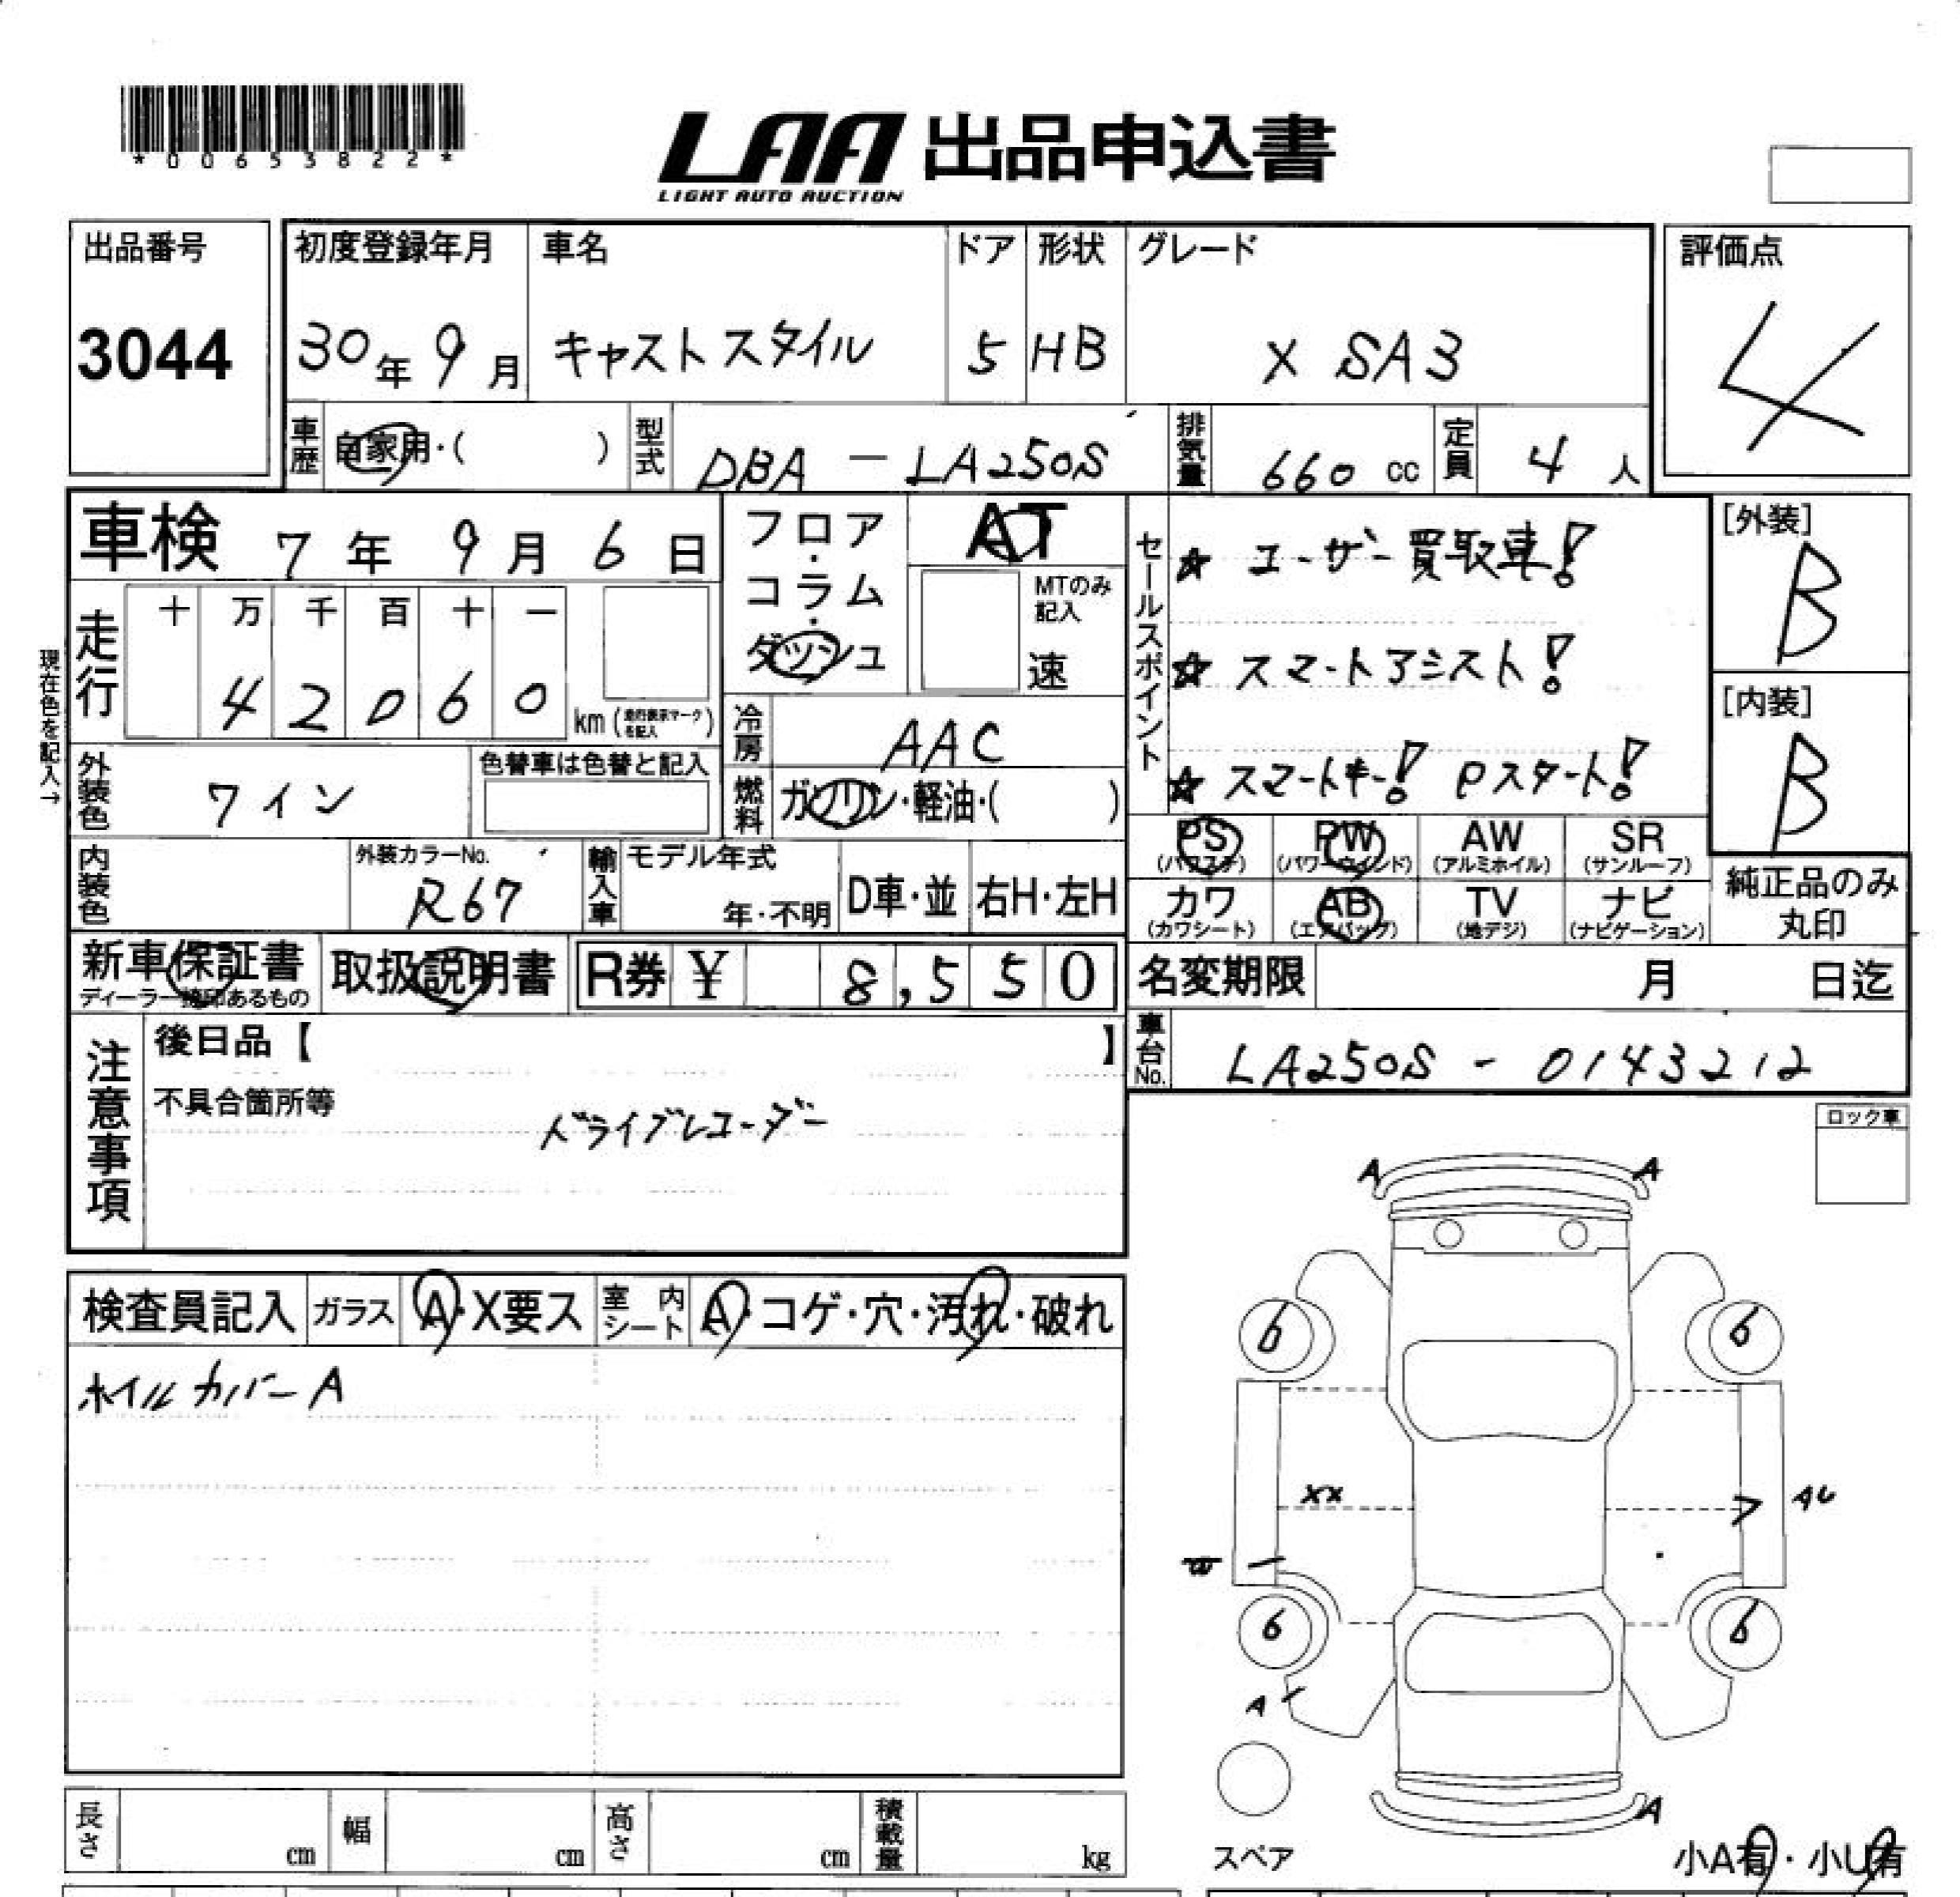 *00653822*
LAA 出品申込書
LIGHT AUTO AUCTION
出品番号
3044
初度登録年月
30年9月
車名
キャストスタイル
ドア
5
形状
HB
グレード
X SA3
評価点
4
車歴 自家用・( )
型式 DBA - LA250S
排気量 660 cc
定員 4 人
車検 7年9月6日
フロア・コラム・ダッシュ
AT
MTのみ記入
速
セールスポイント
☆ユーザー買取車!
☆スマートアシスト!
☆スマートキー! Pスタート!
[外装]
B
[内装]
B
現在色を記入→
走行
十 万 千 百 十 一
4 2 0 6 0
km (走行表示マークを記入)
冷房 AAC
燃料 ガソリン・軽油・( )
外装色 ワイン
色替車は色替と記入
内装色
外装カラーNo.
R67
輸入車
モデル年式
年・不明
D車・並
右H・左H
PS (パワステ)
PW (パワーウインド)
AW (アルミホイル)
SR (サンルーフ)
カワ (カワシート)
AB (エアバッグ)
TV (地デジ)
ナビ (ナビゲーション)
純正品のみ丸印
新車保証書
ディーラー捺印あるもの
取扱説明書
R券 ¥ 8,550
名変期限 月 日迄
車台No. LA250S - 0143212
注意事項
後日品【 】
不具合箇所等
ドライブレコーダー
ロック車
検査員記入
ガラス A・X要ス
室内シート A・コゲ・穴・汚れ・破れ
ホイルカバーA
A A
6 6
XX
AU
6 6
A
A
長さ cm
幅 cm
高さ cm
積載量 kg
スペア
小A有・小U有